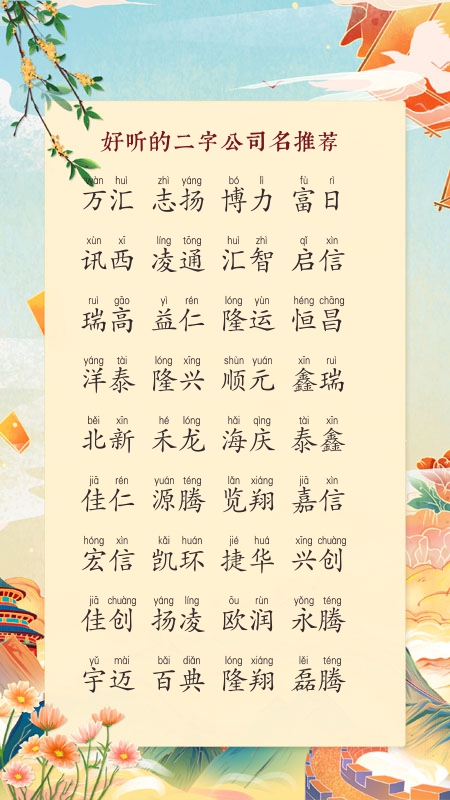 好听的二字公司名推荐
wàn huì zhì yáng bó lì fù rì
万汇 志扬 博力 富日
xùn xī líng tōng huì zhì qǐ xìn
讯西 凌通 汇智 启信
ruì gāo yì rén lóng yùn héng chāng
瑞高 益仁 隆运 恒昌
yáng tài lóng xīng shùn yuán xīn ruì
洋泰 隆兴 顺元 鑫瑞
běi xīn hé lóng hǎi qìng tài xīn
北新 禾龙 海庆 泰鑫
jiā rén yuán téng lǎn xiáng jiā xìn
佳仁 源腾 览翔 嘉信
hóng xìn kǎi huán jié huá xīng chuàng
宏信 凯环 捷华 兴创
jiā chuàng yáng líng ōu rùn yǒng téng
佳创 扬凌 欧润 永腾
yǔ mài bǎi diǎn lóng xiáng lěi téng
宇迈 百典 隆翔 磊腾